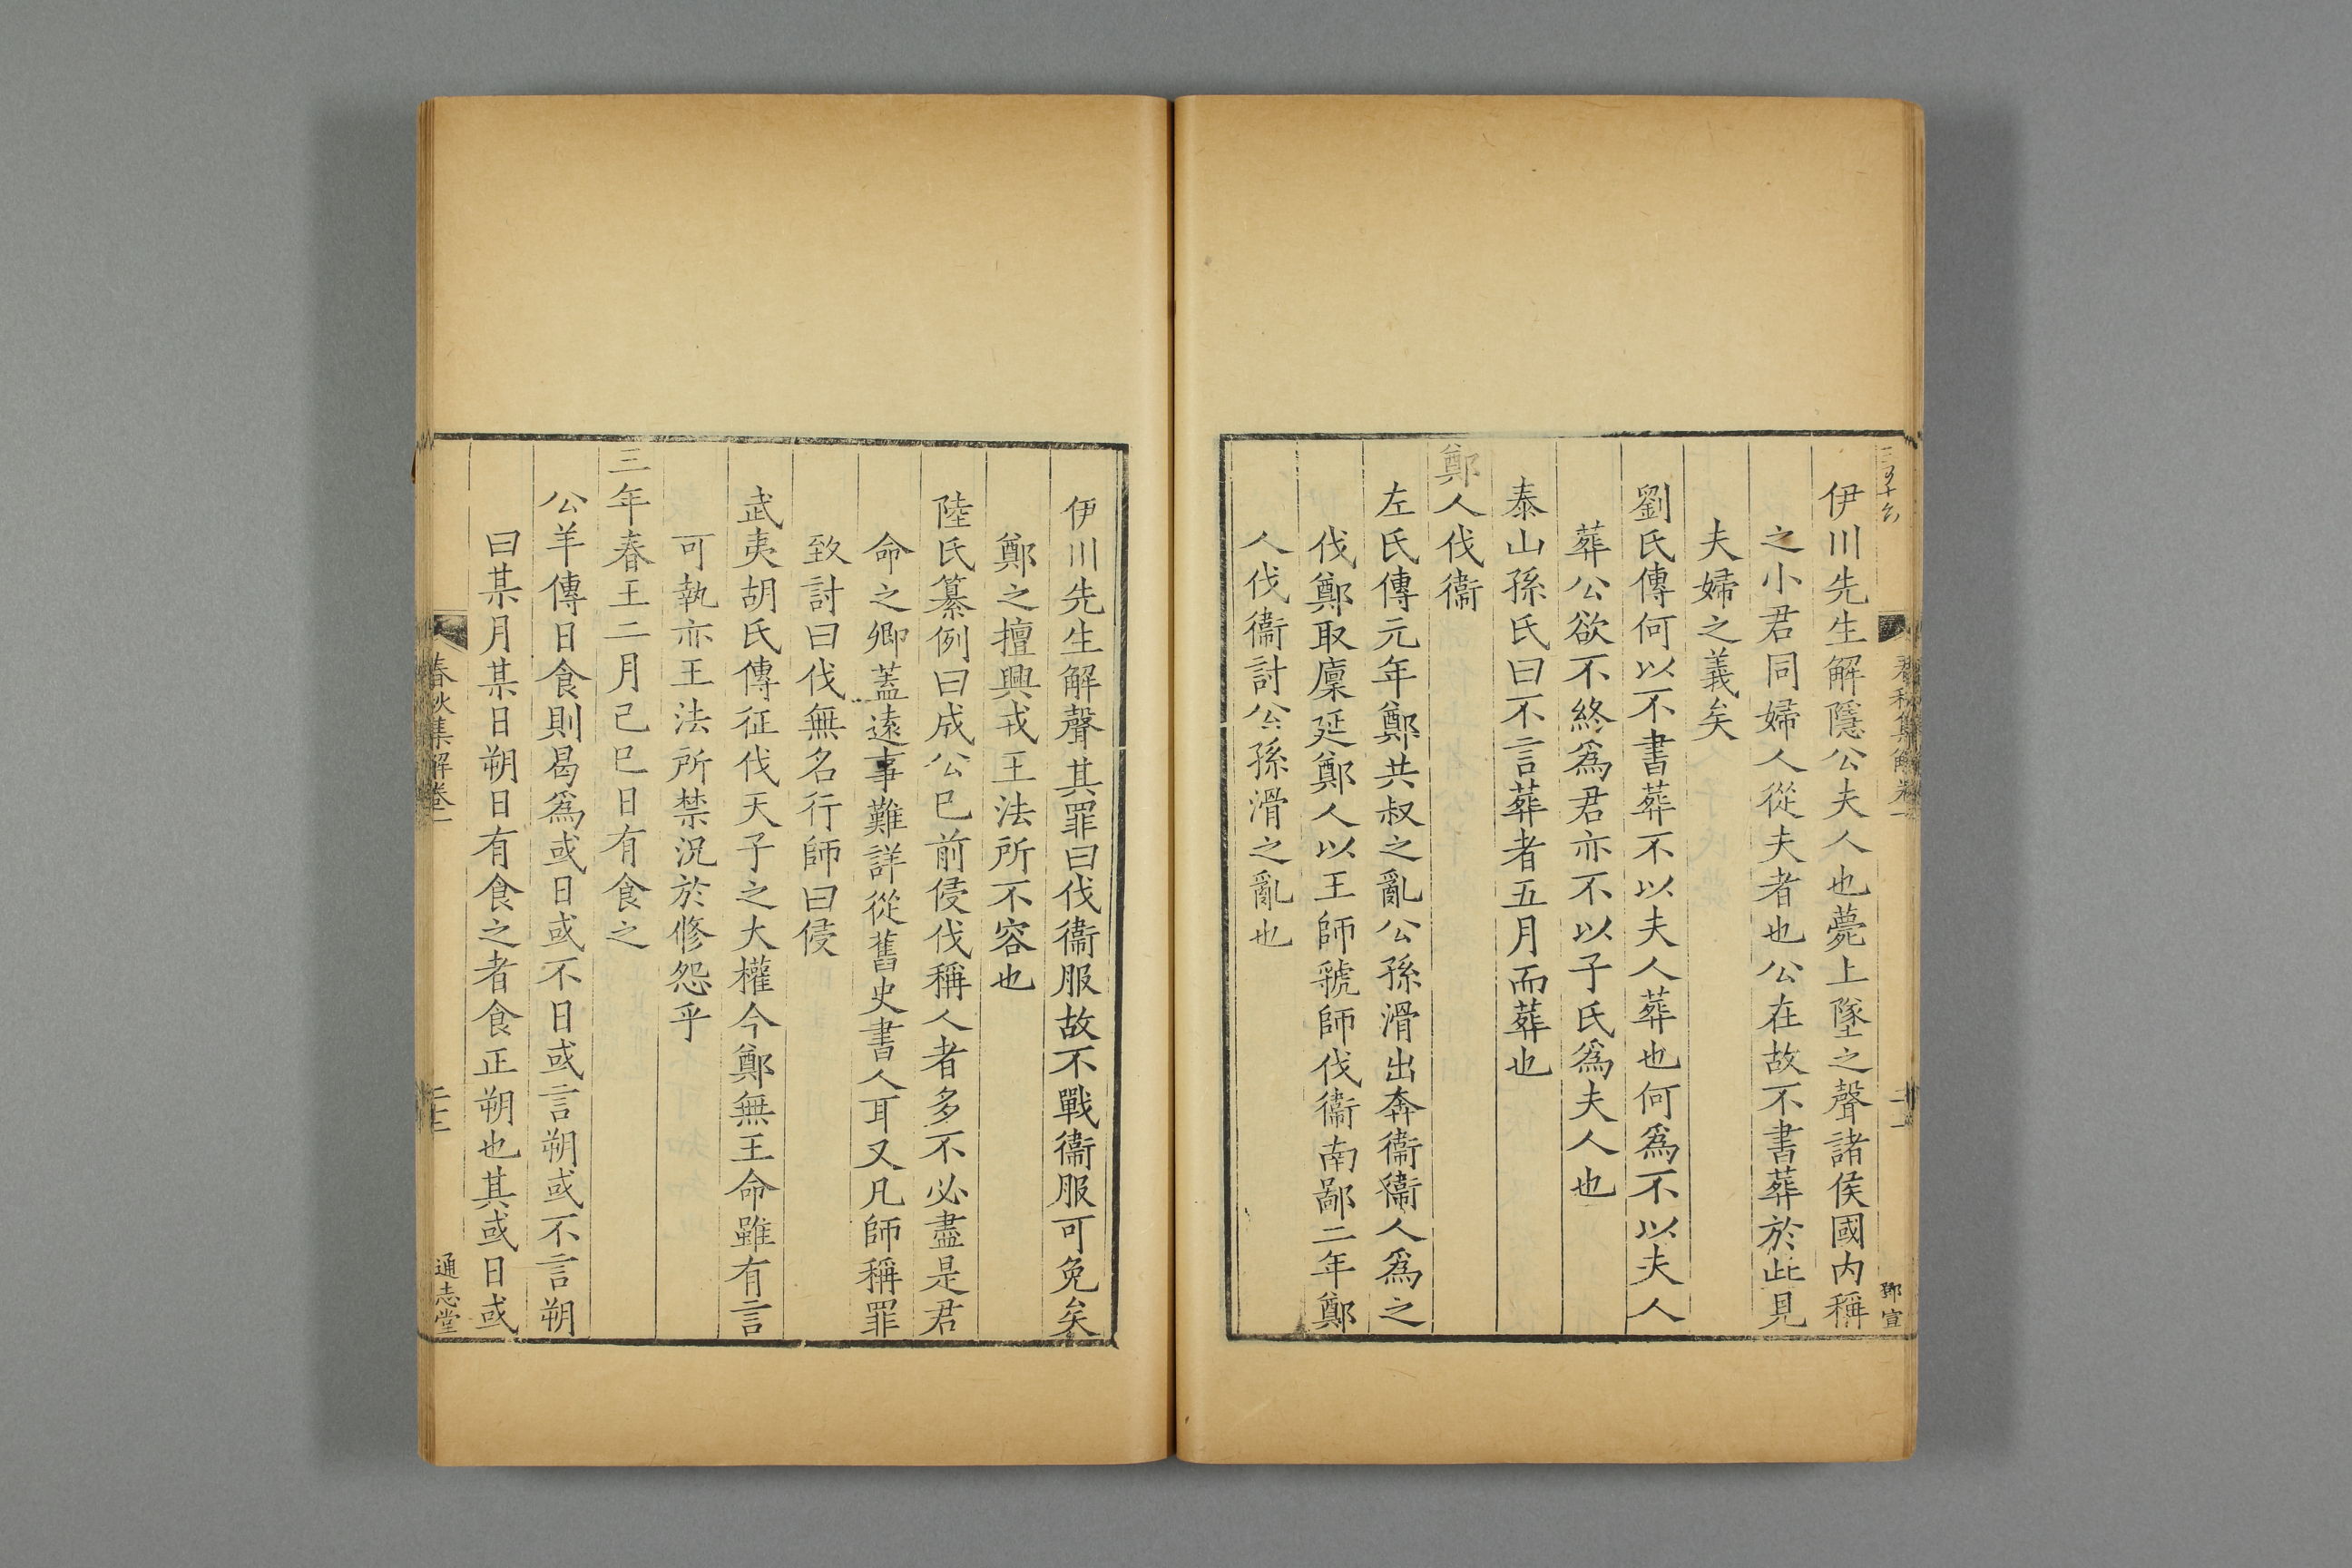 春秋集解卷一
鄧宣
伊川先生解隱公夫人也薨上墜之聲諸侯國內稱
之小君同婦人從夫者也公在故不書葬於此見
夫婦之義矣
劉氏傳何以不書葬不以夫人葬也何為不以夫人
葬公欲不終為君亦不以子氏為夫人也
泰山孫氏曰不言葬者五月而葬也
鄭人伐衞
左氏傳元年鄭共叔之亂公孫滑出奔衞衞人為之
伐鄭取廩延鄭人以王師虢師伐衞南鄙二年鄭
人伐衞討公孫滑之亂也
伊川先生解聲其罪曰伐衞服故不戰衞服可免矣
鄭之擅興戎王法所不容也
陸氏纂例曰成公已前侵伐稱人者多不必盡是君
命之卿蓋遠事難詳從舊史書人耳又凡師稱罪
致討曰伐無名行師曰侵
武夷胡氏傳征伐天子之大權今鄭無王命雖有言
可執亦王法所禁況於修怨乎
三年春王二月己巳日有食之
公羊傳日食則曷為或日或不日或言朔或不言朔
曰某月某日朔日有食之者食正朔也其或日或
春秋集解卷一
通志堂